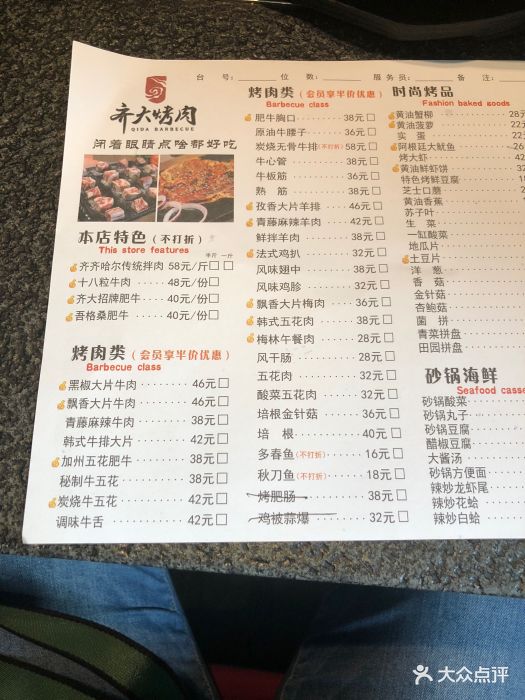 台 号: 位 数: 服务员: 备 注:
齐大烤肉
QIDA BARBECUE
闭着眼睛点啥都好吃
本店特色（不打折）
This store features
半斤 一斤
齐齐哈尔传统拌肉 58元/斤
十八粒牛肉 48元/份
齐大招牌肥牛 40元/份
吾格桑肥牛 40元/份
烤肉类（会员享半价优惠）
Barbecue class
黑椒大片牛肉 46元
飘香大片牛肉 46元
青藤麻辣牛肉 38元
韩式牛排大片 42元
加州五花肥牛 38元
秘制牛五花 38元
炭烧牛五花 42元
调味牛舌 42元
烤肉类（会员享半价优惠）
Barbecue class
肥牛胸口 38元
原油牛腰子 36元
炭烧无骨牛排(不打折) 58元
牛心管 38元
牛板筋 36元
熟筋 38元
孜香大片羊排 46元
青藤麻辣羊肉 42元
鲜拌羊肉 38元
法式鸡扒 32元
风味翅中 38元
风味鸡胗 32元
飘香大片梅肉 36元
韩式五花肉 38元
梅林午餐肉 38元
风干肠 38元
五花肉 32元
酸菜五花肉 32元
培根金针菇 36元
培根 40元
多春鱼(不打折) 16元
秋刀鱼(不打折) 18元
烤肥肠 38元
鸡被蒜爆 32元
时尚烤品
Fashion baked goods
黄油蟹柳 28
黄油菠萝 22元
实蛋 22
阿根廷大鱿鱼
烤大虾
黄油鲜虾饼
特色烤鲜豆腐
芝士口蘑
黄油香蕉
苏子叶
生菜
一缸酸菜
地瓜片
土豆片
洋葱
香菇
金针菇
杏鲍菇
菌拼
青菜拼盘
田园拼盘
砂锅海鲜
Seafood casse
砂锅酸菜
砂锅丸子
砂锅豆腐
醋椒豆腐
大酱汤
砂锅方便面
辣炒龙虾尾
辣炒花蛤
辣炒白蛤
大众点评